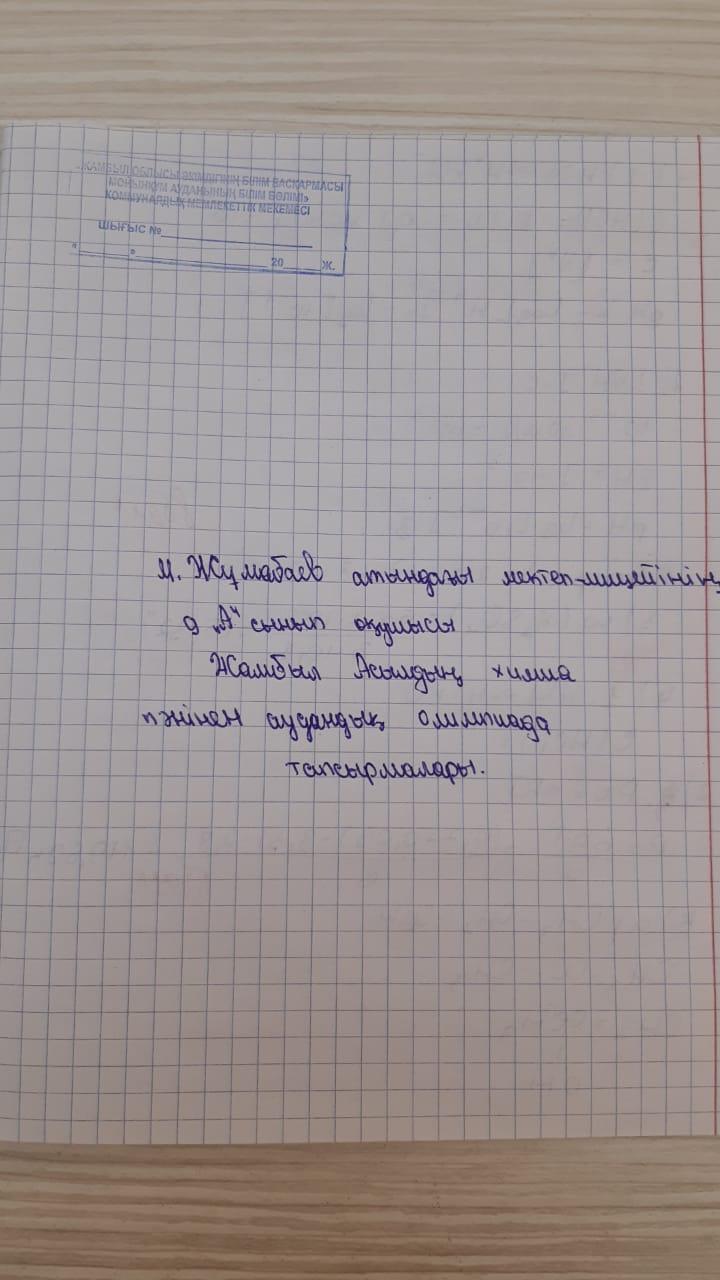 «ЖАМБЫЛ ОБЛЫСЫ ӘКІМДІГІНІҢ БІЛІМ БАСҚАРМАСЫ
МОЙЫНҚҰМ АУДАНЫНЫҢ БІЛІМ БӨЛІМІ»
КОММУНАЛДЫҚ МЕМЛЕКЕТТІК МЕКЕМЕСІ
ШЫҒЫС №
« » 20 Ж.
М. Жұмабаев атындағы мектеп-лицейінің
9 „А" сынып оқушысы
Жамбыл Асылдың химия
пәнінен аудандық олимпиада
тапсырмалары.